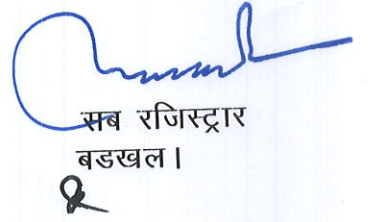 सब रजिस्ट्रार
बडखल।